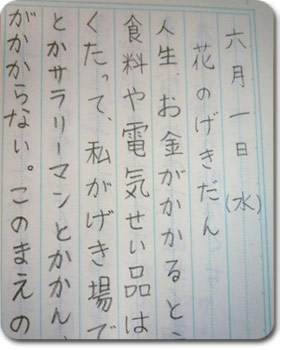 六月一日(水)
花のげきだん
人生、お金がかかると、
食料や電気せい品は
くたって、私がげき場で
とかサラリーマンとかかん、
がかからない。このまえの